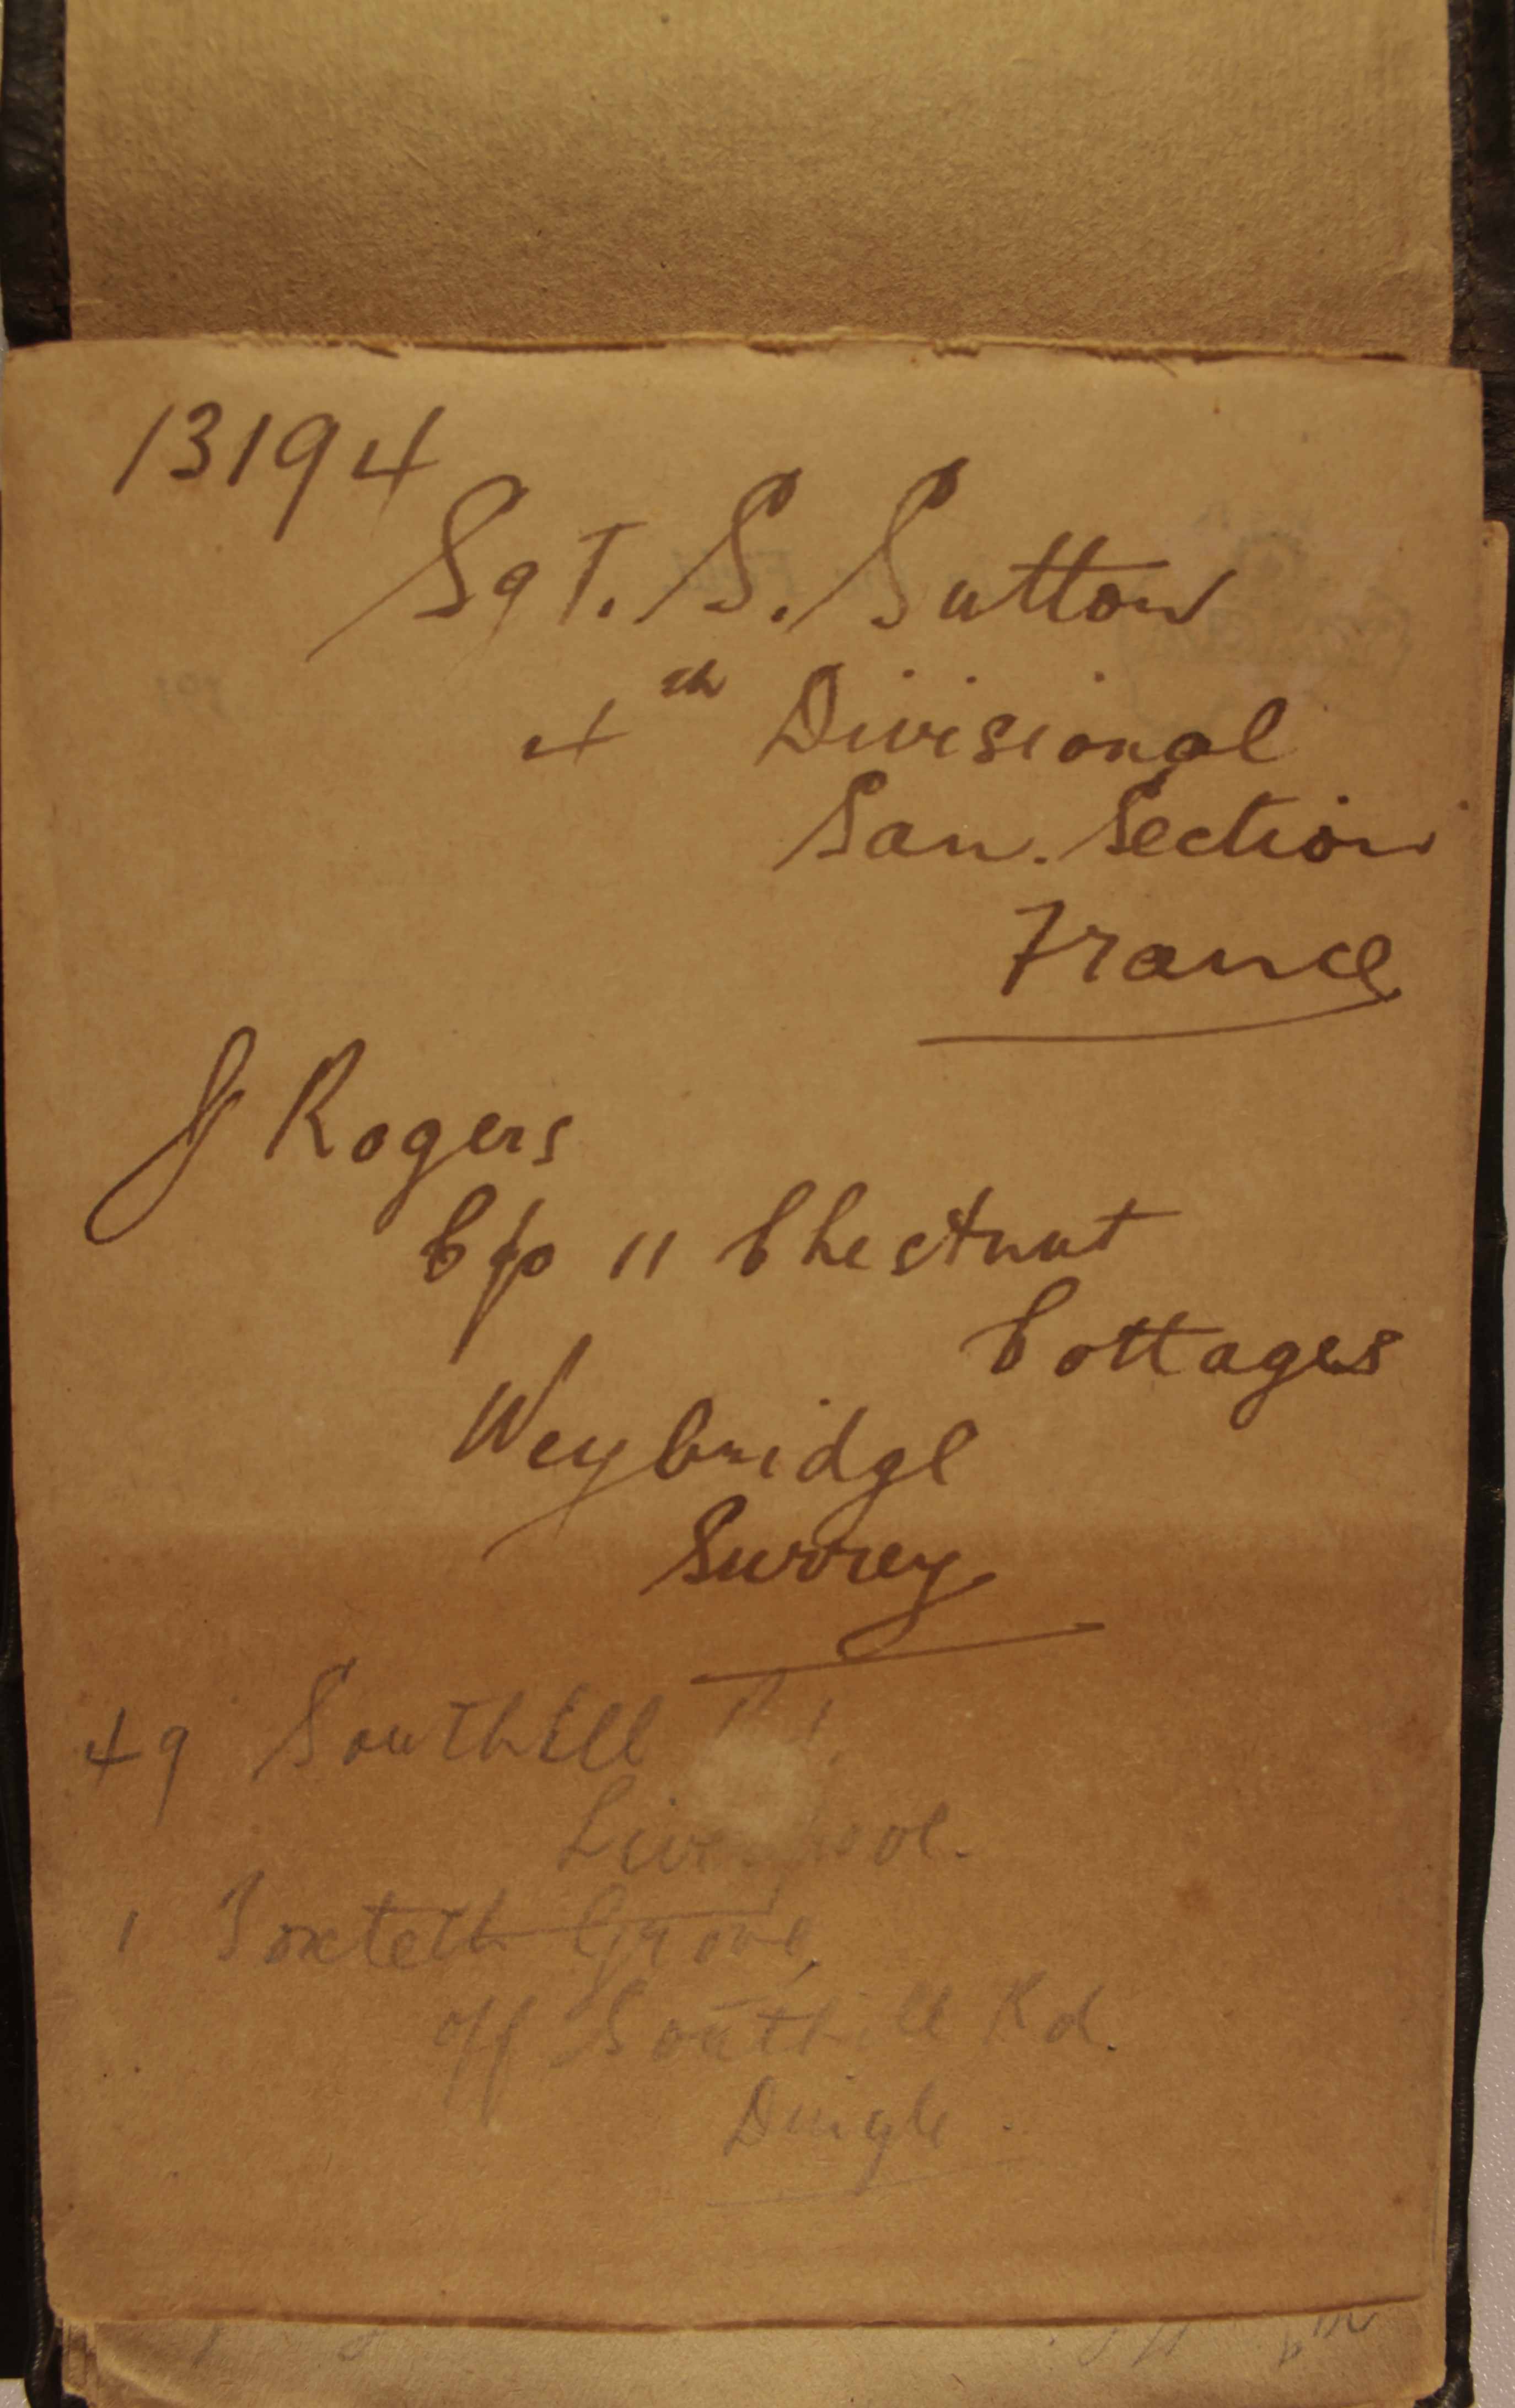 13194
Sgt. S. Sutton
4th Divisional
San. Section
France
J Rogers
C/o 11 Chestnut
Cottages
Weybridge
Surrey
49 Southill
Liverpool.
1 Toxteth Grove,
off Southill Rd.
Dingle.